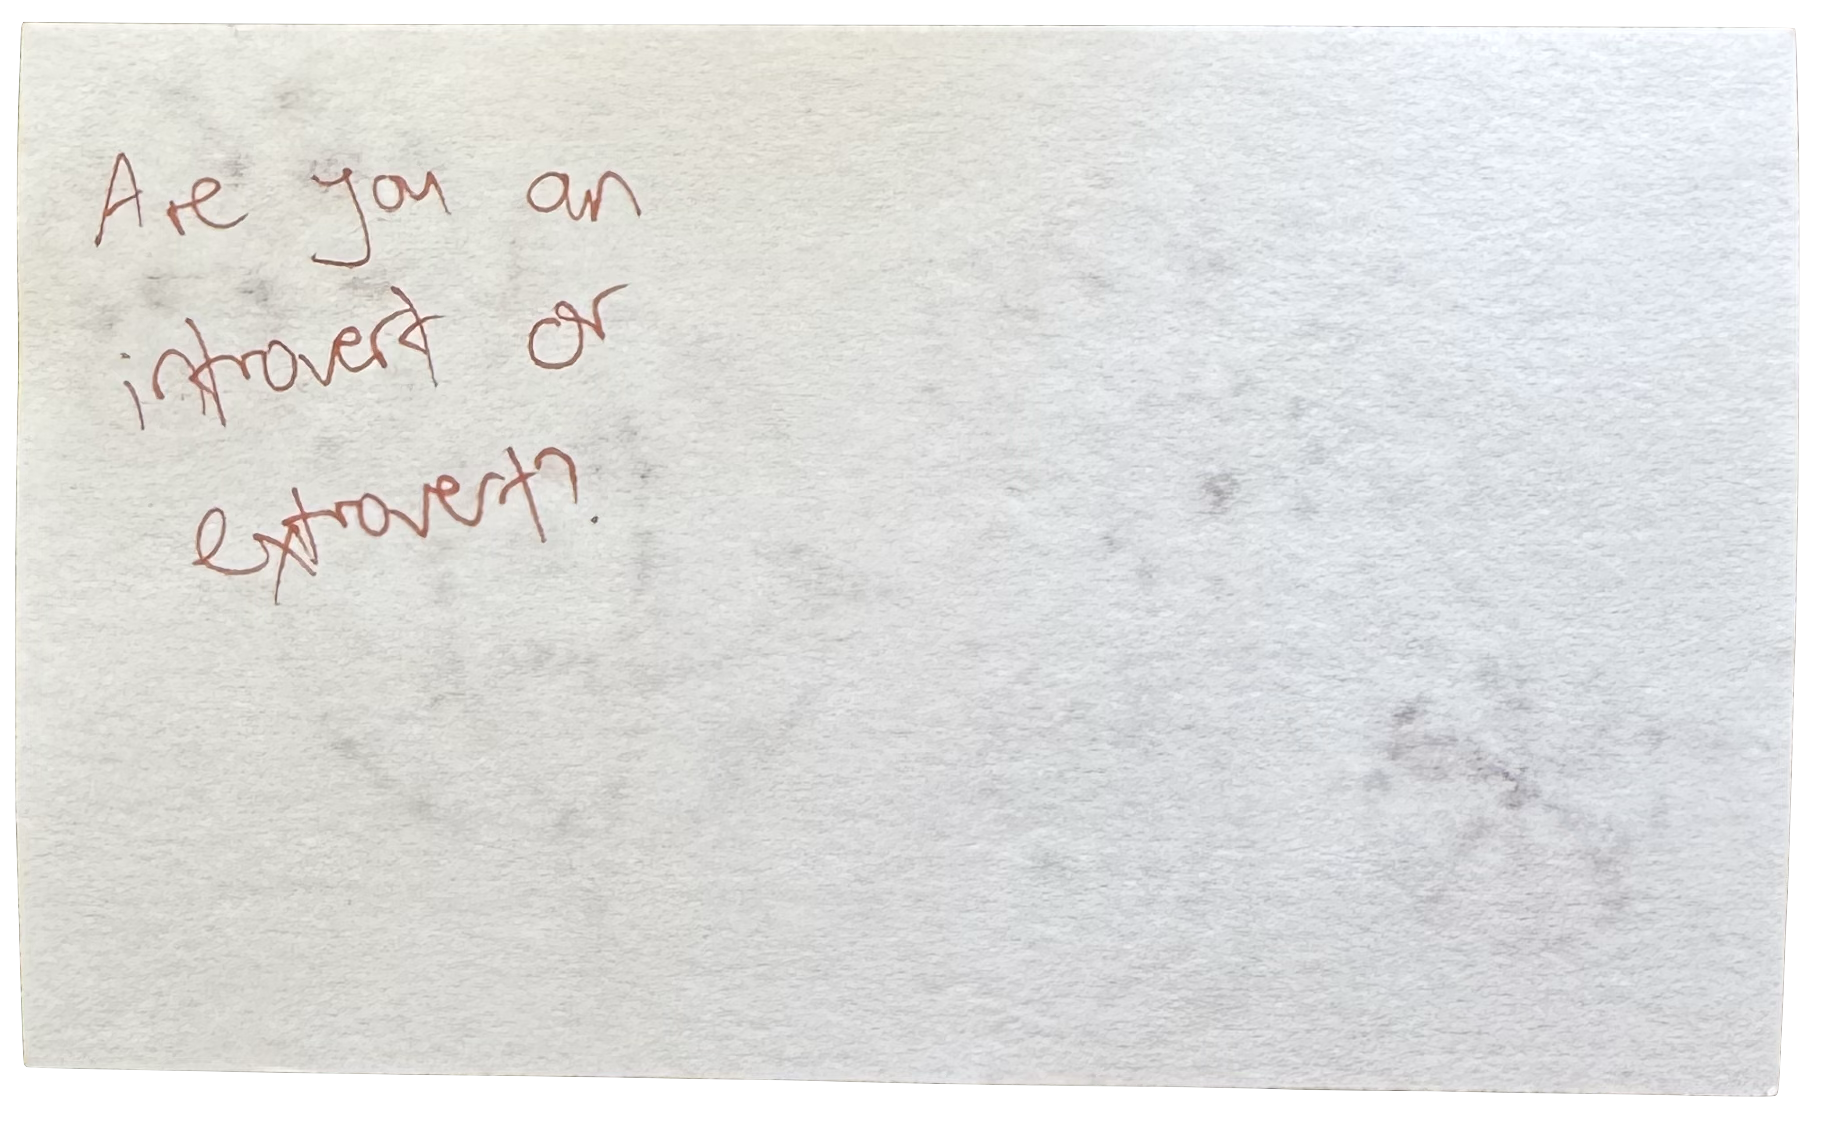 Are you an
introvert or
extrovert?